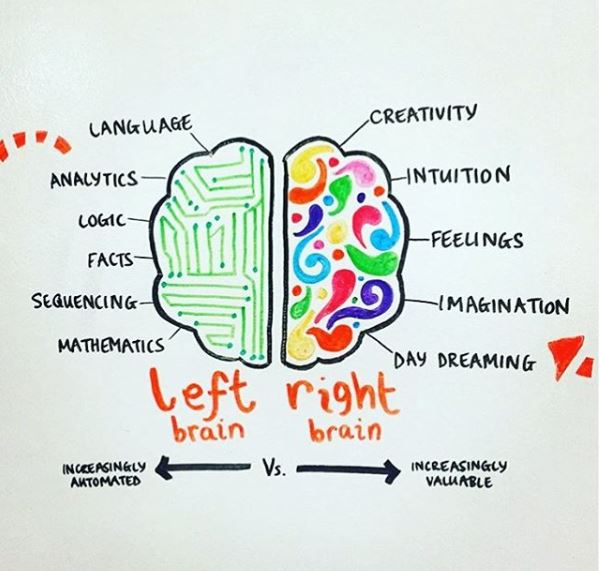 LANGUAGE
ANALYTICS
LOGIC
FACTS
SEQUENCING
MATHEMATICS
CREATIVITY
INTUITION
FEELINGS
IMAGINATION
DAY DREAMING
left right
brain brain
INCREASINGLY
AUTOMATED
Vs.
INCREASINGLY
VALUABLE